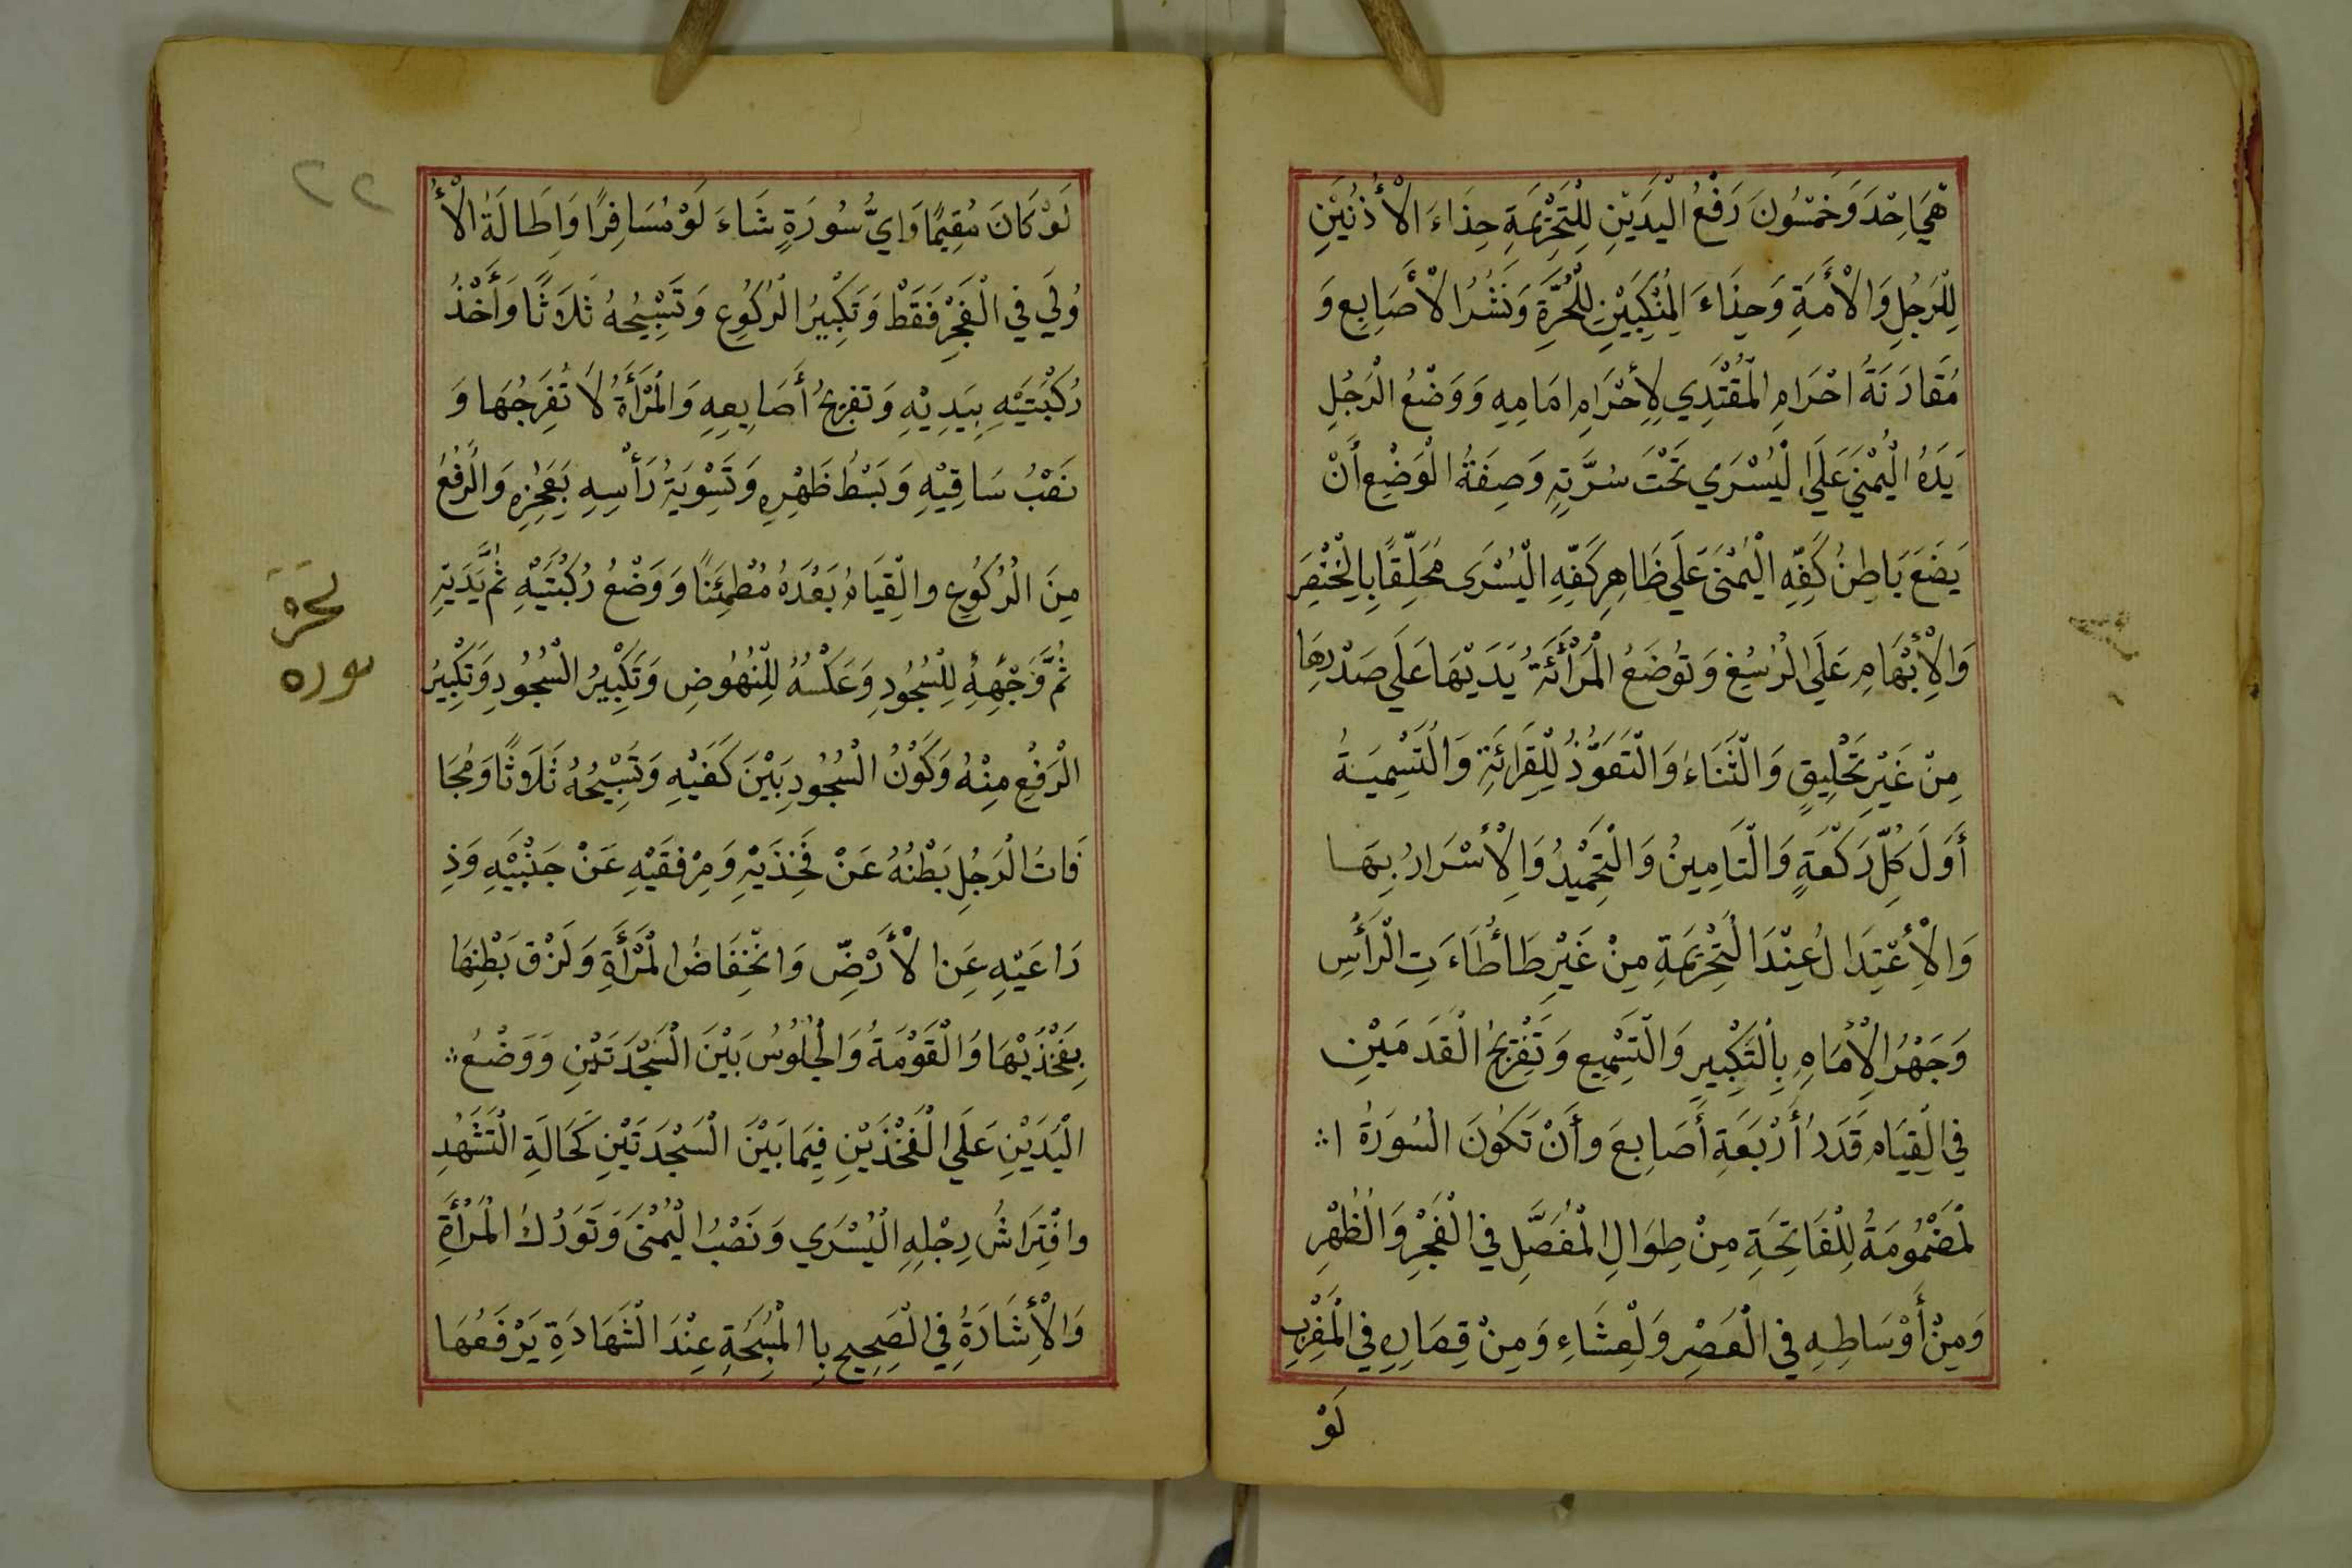 هِيَ اِحْدَ وَخَمْسُونَ رَفْعُ الْيَدَيْنِ لِلتَّحْرِيْمَةِ حِذَاءَ الْأُذُنَيْنِ
لِلرَجُلِ وَالْأَمَةِ وَحِذَاءَ الْمَنْكِبَيْنِ لِلْحُرَّةِ وَنَشْرُ الْأَصَابِعِ وَ
مُقَارَنَةُ احْرَامِ الْمُقْتَدِي لِإِحْرَامِ امَامِهِ وَوَضْعُ الْرَجُلِ
يَدَهُ الْيُمْنَي عَلَي الْيُسْرَي تَحْتَ سُرَّتِهِ وَصِفَةُ الْوَضْعِ أَنْ
يَضَعَ بَاطِنُ كَفِّهِ الْيُمْنَى عَلَي ظَاهِرِ كَفِّهِ الْيُسْرَى مُحَلِّقًا بِالْخِنْصِرَ
وَالْإِبْهَامِ عَلَي الْرُسُغِ وَتُوضَعُ الْمَرْأَةُ يَدَيْهَا عَلَي صَدْرِهَا
مِنْ غَيْرِ تَحْلِيقٍ وَالْثَنَاءُ وَالْتَعَوُّذُ لِلْقِرَائَةِ وَالْتَسْمِيَةُ
أَوَلَ كُلِّ رَكْعَةٍ وَالْتَامِينُ وَالْتَحْمِيْدُ وَالْأِسْرَارُ بِهَا
وَالْأِعْتِدَالُ عِنْدَ الْتَحْرِيْمَةِ مِنْ غَيْرِ طَأطَاءَتِ الْرَأْسِ
وَجَهْرُ الْأِمَامِ بِالْتَكْبِيرِ وَالْتَسْمِيعِ وَتَفْرِيجُ الْقَدَمَيْنِ
فِي الْقِيَامِ قَدَرُ أَرْبَعَةِ أَصَابِعَ وأَنْ تَكُونَ الْسُورَةُ ا
لْمَضْمُومَةُ لِلْفَاتِحَةِ مِنْ طِوَالِ الْمُفَصَّلِ فِي الْفَجْرِ وَالْظُهْرِ
وَمِنْ أَوْسَاطِهِ فِي الْعَصْرِ وَلْعِشَاءِ وَمِنْ قِصَارِهِ فِي الْمَغْرِبِ
لَوْ
٢٢
لَوْ كَانَ مُقِيمًا وَايُّ سُورَةٍ شَاءَ لَوْ مُسَافِرًا وَاِطَالَةُ الْأُ
وْلَي فِي الْفَجْرِ فَقَطْ وَتَكْبِيرُ الْرُكُوعِ وَتَسْبِيْحُهُ ثَلَاثًا وَأَخْذُ
رُكْبَتَيْهِ بِيَدِيْهِ وَتفرِيجُ أَصَابِعِهِ وَالْمَرْأَةُ لَا تُفَرِجُهَا وَ
نَصْبُ سَاقِيْهِ وَبَسْطُ ظَهْرِهِ وَتَسْوِيَةُ رَأْسِهِ بِعَجْزِهِ وَالْرَفْعُ
مِنَ الْرُكُوعِ والْقِيَامُ بَعْدَهُ مُطْمَئِنًا وَوَضْعُ رُكْبَتَيْهِ ثُمَّ يَدَيْهِ
ثُمَّ وَجْهِهِ لِلْسُجُودِ وَعَكْسُهُ لِلْنُهُوضِ وَتَكْبِيْرُ الْسُجُودِ وَتَكْبِيْرُ
الْرَفْعِ مِنْهُ وَكَوْنُ الْسُجُودِ بَيْنَ كَفَيْهِ وَتَسْبِيْحُهُ ثَلَاثًا وَمُجَا
فَاتُ الْرَجُلِ بَطْنُهُ عَنْ فَخِذَيْهِ وَمِرْفَقَيْهِ عَنْ جَنْبَيْهِ وَذِ
رَاعَيْهِ عَنِ الْأَرْضِّ وَانْخِفَاضُ الْمَرْأَةِ وَلَزْق بَطْنِهَا
بِفَخْذَيْهَا وَالْقَوْمَةُ وَالْجُلُوْسُ بَيْنَ الْسَجْدَتَيْنِ وَوَضْعُ
الْيَدَيْنِ عَلَي الْفَخْذَيْنِ فِيَما بَيْنَ الْسَجْدَتَيْنِ كَحَالَةِ الْتَشَهُدِ
وافْتِرَاشُ رِجْلِهِ الْيُسْرَي وَنَصْبُ الْيُمْنَى وَتَوَرُكُ الْمَرْأَةِ
وَالْأِشَارَةُ فِي الْصَحِيحِ بِا الْمُسَبِّحَةِ عِنْدَ الْشَهَادَةِ يَرْفَعُهَا
سوره